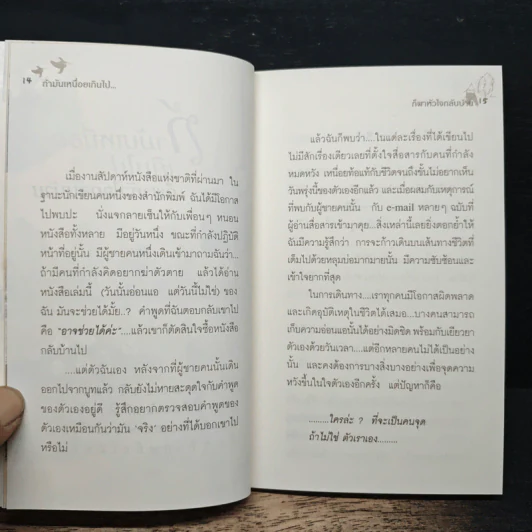 14 ถ้ามันเหนื่อยเกินไป...
เมื่องานสัปดาห์หนังสือแห่งชาติที่ผ่านมา ใน
ฐานะนักเขียนคนหนึ่งของสำนักพิมพ์ ฉันได้มีโอกาส
ไปพบปะ นั่งแจกลายเซ็นให้กับเพื่อนๆ หนอน
หนังสือทั้งหลาย มีอยู่วันหนึ่ง ขณะที่กำลังปฏิบัติ
หน้าที่อยู่นั้น มีผู้ชายคนหนึ่งเดินเข้ามาถามฉันว่า...
ถ้ามีคนที่กำลังคิดอยากฆ่าตัวตาย แล้วได้อ่าน
หนังสือเล่มนี้ (วันนั้นอ่อนแอ แต่วันนี้ไม่ใช่) ของ
ฉัน มันจะช่วยได้มั้ย..? คำพูดที่ฉันตอบกลับเขาไป
คือ "อาจช่วยได้ค่ะ"....แล้วเขาก็ตัดสินใจซื้อหนังสือ
กลับบ้านไป
....แต่ตัวฉันเอง หลังจากที่ผู้ชายคนนั้นเดิน
ออกไปจากบูทแล้ว กลับยังไม่หายสะดุดใจกับคำพูด
ของตัวเองอยู่ดี รู้สึกอยากตรวจสอบคำพูดของ
ตัวเองเหมือนกันว่ามัน 'จริง' อย่างที่ได้บอกเขาไป
หรือไม่
ก็พาหัวใจกลับบ้าน 15
แล้วฉันก็พบว่า...ในแต่ละเรื่องที่ได้เขียนไป
ไม่มีสักเรื่องเดียวเลยที่ตั้งใจสื่อสารกับคนที่กำลัง
หมดหวัง เหนื่อยท้อแท้กับชีวิตจนถึงขั้นไม่อยากเห็น
วันพรุ่งนี้ของตัวเองอีกแล้ว และเมื่อผสมกับเหตุการณ์
ที่พบกับผู้ชายคนนั้น กับ e-mail หลายๆ ฉบับที่
ผู้อ่านสื่อสารเข้ามาคุย...สิ่งเหล่านี้เลยยิ่งตอกย้ำให้
ฉันมีความรู้สึกว่า การจะก้าวเดินบนเส้นทางชีวิตที่
เต็มไปด้วยหลุมบ่อมากมายนั้น มีความซับซ้อนและ
เข้าใจยากที่สุด
ในการเดินทาง....เราทุกคนมีโอกาสผิดพลาด
และเกิดอุบัติเหตุในชีวิตได้เสมอ...บางคนสามารถ
เก็บความอ่อนแอนั้นได้อย่างมิดชิด พร้อมกับเยียวยา
ตัวเองด้วยวันเวลา....แต่อีกหลายคนไม่ได้เป็นอย่าง
นั้น และคงต้องการบางสิ่งบางอย่างเพื่อจุดความ
หวังขึ้นในใจตัวเองอีกครั้ง แต่ปัญหาก็คือ
........ใครล่ะ ? ที่จะเป็นคนจุด
ถ้าไม่ใช่ ตัวเราเอง........